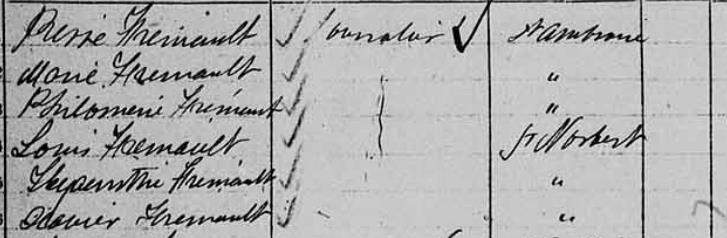 Pierre Fremault Journalier St Ambroise
Marie Fremault "
Philomene Fremault "
Louis Fremault St Norbert
Fremault "
Fremault "